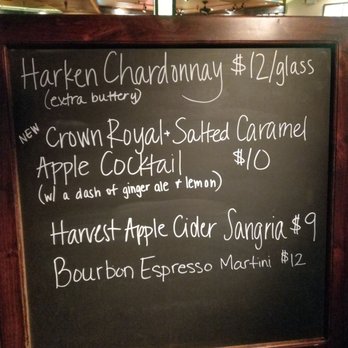 Harken Chardonnay $12/glass
(extra buttery)
NEW
Crown Royal + Salted Caramel
Apple Cocktail $10
(w/ a dash of ginger ale + lemon)
Harvest Apple Cider Sangria $9
Bourbon Espresso Martini $12